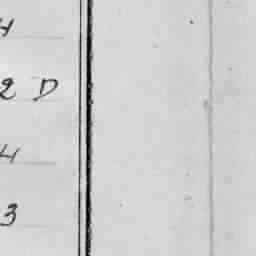 4
2 D
4
3